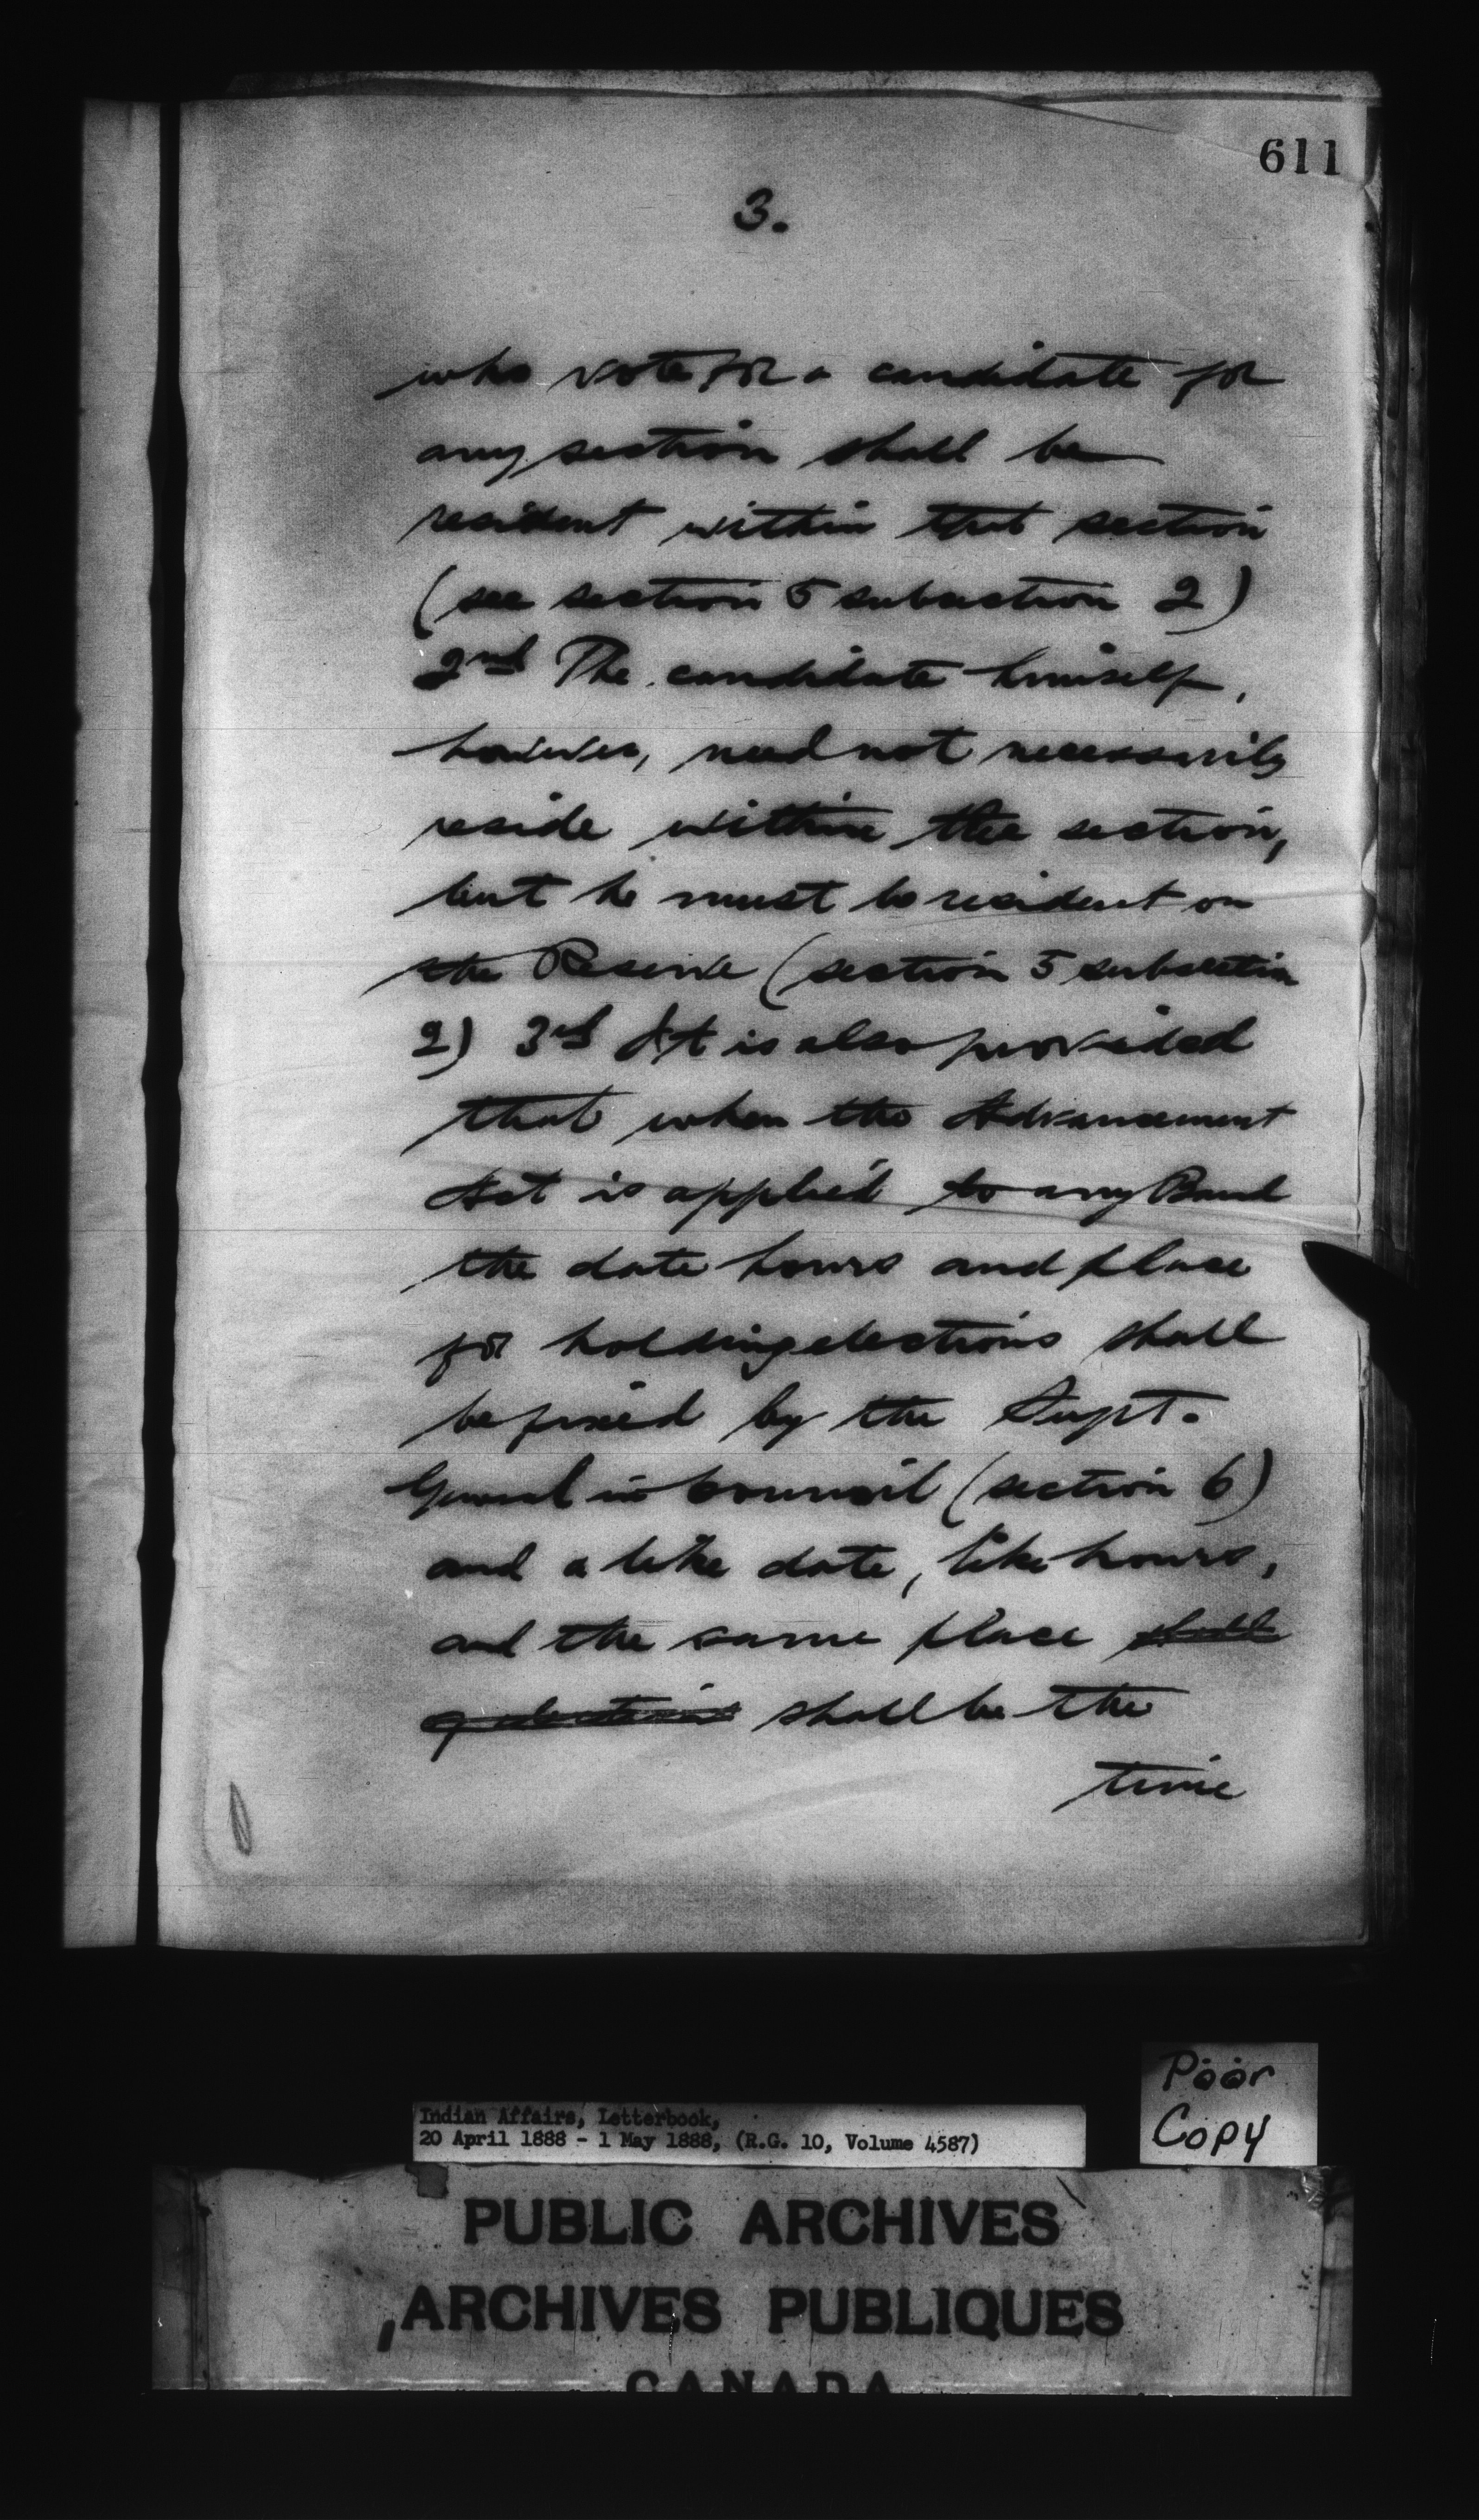 611
3.
who vote for a candidate for
any section shall be
resident within that section
(see section 5 subsection 2)
2nd The candidate himself,
however, need not necessarily
reside within the section,
but he must be resident on
the Reserve (section 5 subsection
2) 3rd It is also provided
that when the Advancement
Act is applied to any Band
the date hours and place
for holding elections shall
be fixed by the Supt.
General in Council (section 6)
and a like date, like hours,
and the same place shall
of election shall be the
time
Poor
Copy
Indian Affairs, Letterbook,
20 April 1888 - 1 May 1888, (R.G. 10, Volume 4587)
PUBLIC ARCHIVES
ARCHIVES PUBLIQUES
CANADA